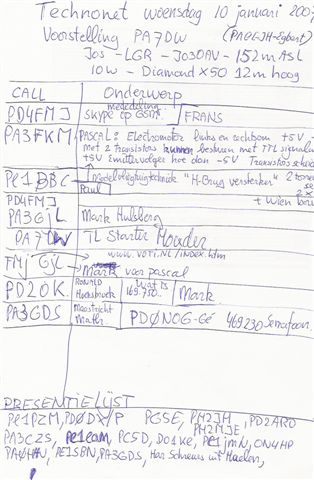 Technonet woensdag 10 januari 200
Voorstelling PA7DW (PA0EJH-Egbert)
Jos - LGR - JO30AV - 152m ASL
10W - Diamond X50 12m hoog
CALL Onderwerp
mededeling
PD4FMJ Skype op GSM. FRANS
PA3FKM PASCAL: Electromotor links en rechtsom +5V
Met 2 Transistors kunnen besturen met TTL signalen
+5V Emittervolger hoe dan -5V Transistorschak
PE1DBC Modelvliegtuigtechniek "H-Brug versterker" 2 tonen
Paul
PD4FMJ + Wien
PA3GJL Mark Hulsberg
PA7DW TL Starter Houder
www.voti.nl/index.htm
FMJ GJL Mark voor pascal
PD2OK Ronald Hoensbroek Wat is 169.750.. Mark
PA3GDS Maastricht Math PD0NOG-Gé 469230 Semafoon
PRESENTIELIJST
PE1PZM, PD0DXP PG5E, PH2JH, PD2ARO
PH2MJE
PA3CZS, PE1EAM, PC5D, DO1KE, PE1JMN, ON4HP
PA0HAN, PE1SBN, PA3GDS, Har Schreurs uit Haelen,